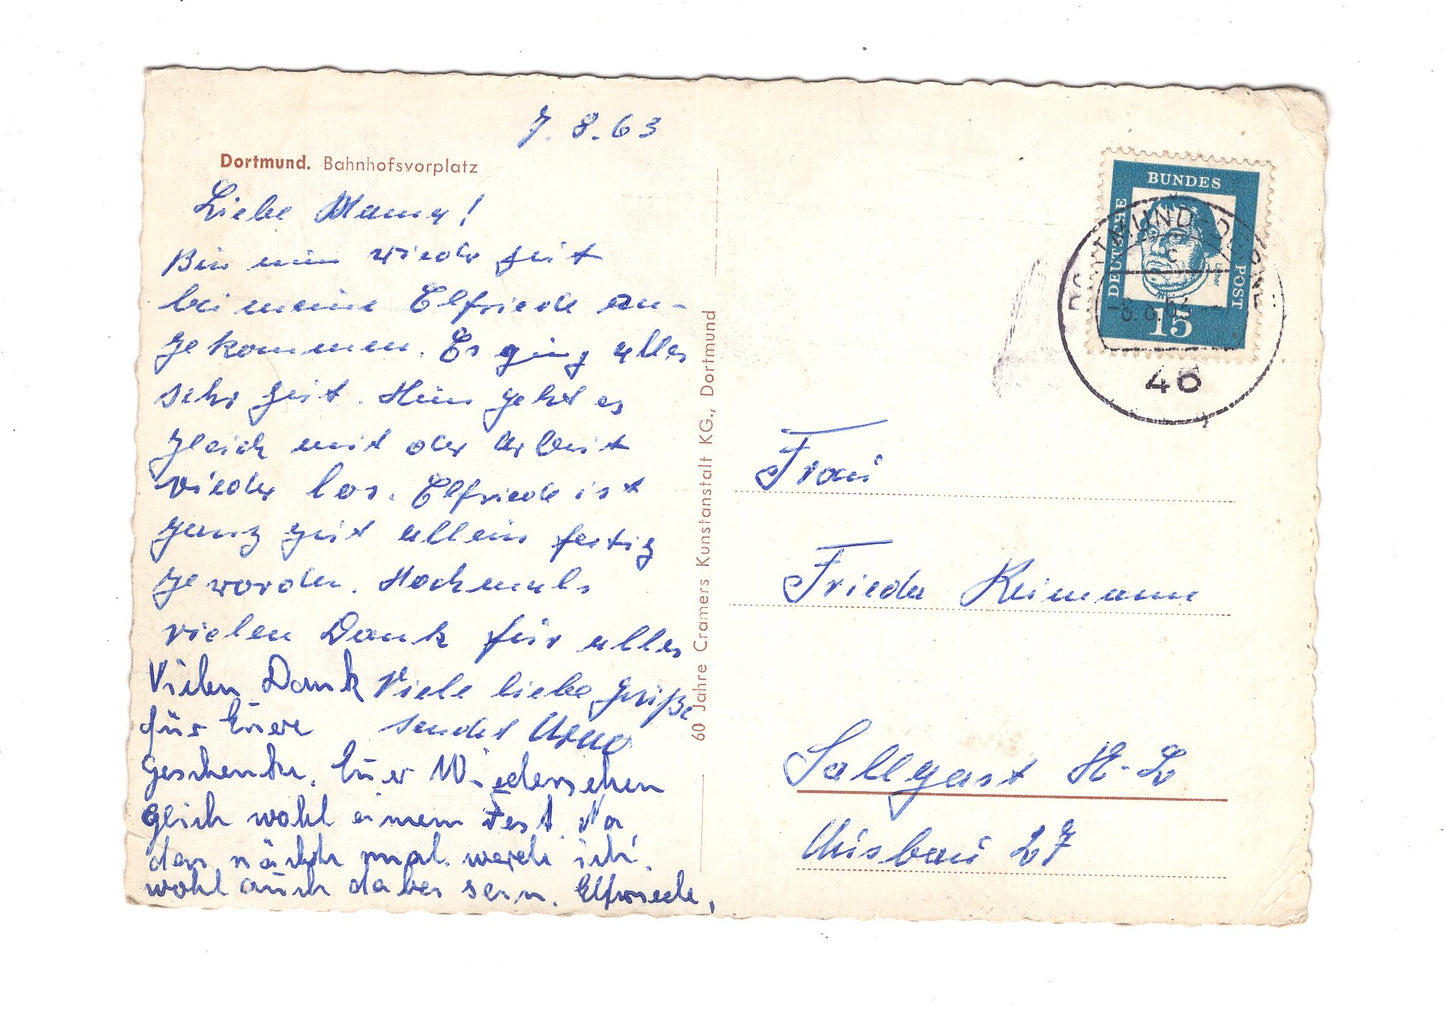 7.8.63
Dortmund. Bahnhofsvorplatz
Liebe Mamy!
Bin nun wieder gut
bei meine Elfriede an-
gekommen. Es ging alles
sehr gut. Nun geht es
gleich mit der Arbeit
wieder los. Elfriede ist
ganz gut allein fertig
geworden. Nochmals
vielen Dank für alles
Viele liebe Grüße
sendet Arno
Vielen Dank
für Euere
Geschenke. Euer Wiedersehen
glich wohl einem Fest. Na,
das nächste mal werde ich
wohl auch dabei sein. Elfriede.
60 Jahre Cramers Kunstanstalt KG., Dortmund
DEUTSCHE
BUNDES
POST
15
DORTMUND
-8.8.63
46
Frau
Frieda Reimann
Sallgast N-L
Ausbau 27